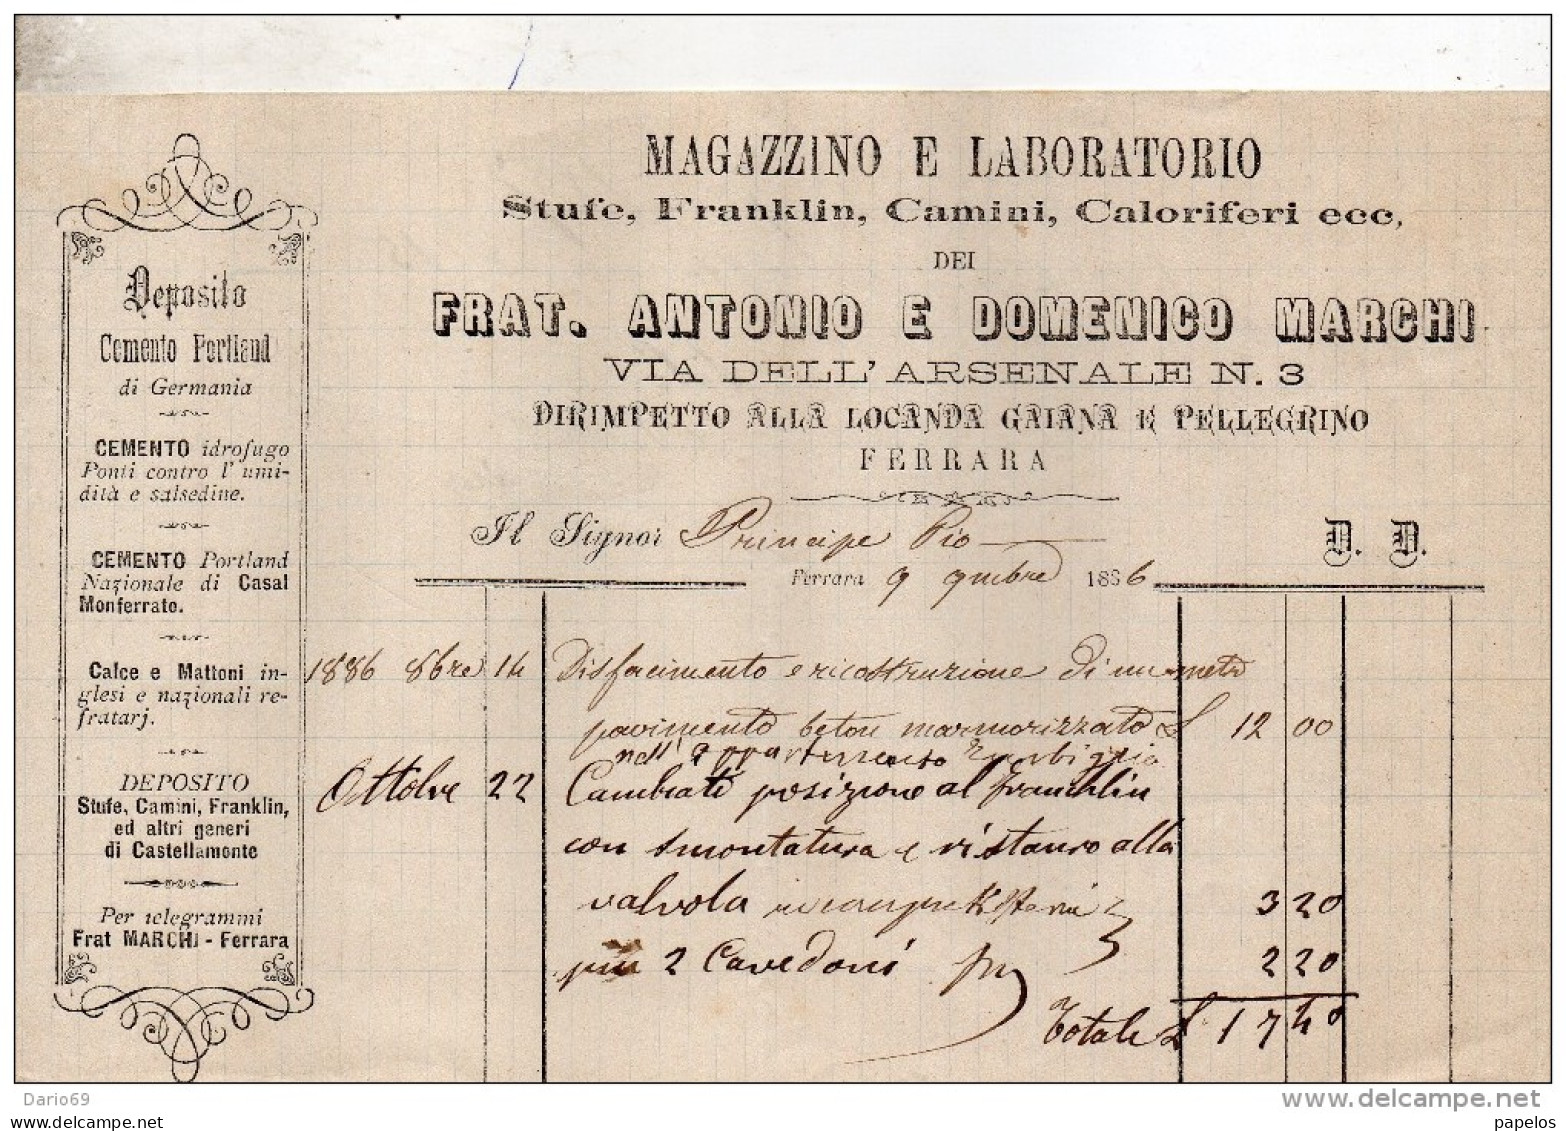 MAGAZZINO E LABORATORIO
Stufe, Franklin, Camini, Caloriferi ecc,
DEI
FRAT. ANTONIO E DOMENICO MARCHI
VIA DELL'ARSENALE N. 3
DIRIMPETTO ALLA LOCANDA GAIANA E PELLEGRINO
FERRARA
Il Signor Principe Pio
D. D.
Ferrara 9 9mbre 1886
Deposito
Cemento Portland
di Germania
CEMENTO idrofugo
Ponti contro l'umi-
dità e salsedine.
CEMENTO Portland
Nazionale di Casal
Monferrato.
Calce e Mattoni in-
glesi e nazionali re-
fratarj.
DEPOSITO
Stufe, Camini, Franklin,
ed altri generi
di Castellamonte
Per telegrammi
Frat MARCHI - Ferrara
1886 8bre 14 Disfacimento e ricostruzione di un metro
pavimento beton marmorizzato £ 12 00
nell'appartamento
Ottobre 22 Cambiato posizione al franchlin
con smontatura e ristauro alla
valvola 3 20
più 2 Cavedoni 2 20
Totale £ 17 40
Dario69
www.delcampe.net
invoices and commercial documents
papelos